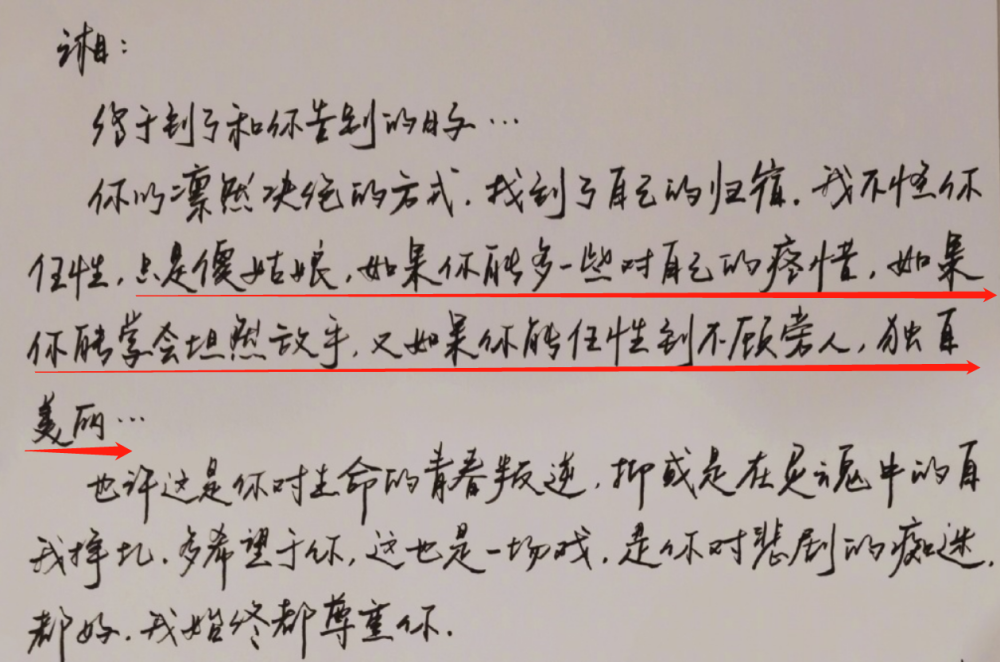 湘：
终于到了和你告别的日子…
你以凛然决绝的方式，找到了自己的归宿。我不怪你
任性，只是傻姑娘，如果你能多一些对自己的疼惜，如果
你能学会坦然放手，又如果你能任性到不顾旁人，独自
美丽…
也许这是你对生命的青春叛逆，抑或是在灵魂中的自
我挣扎，多希望于你，这也是一场戏，是你对悲剧的痴迷，
都好，我始终都尊重你.